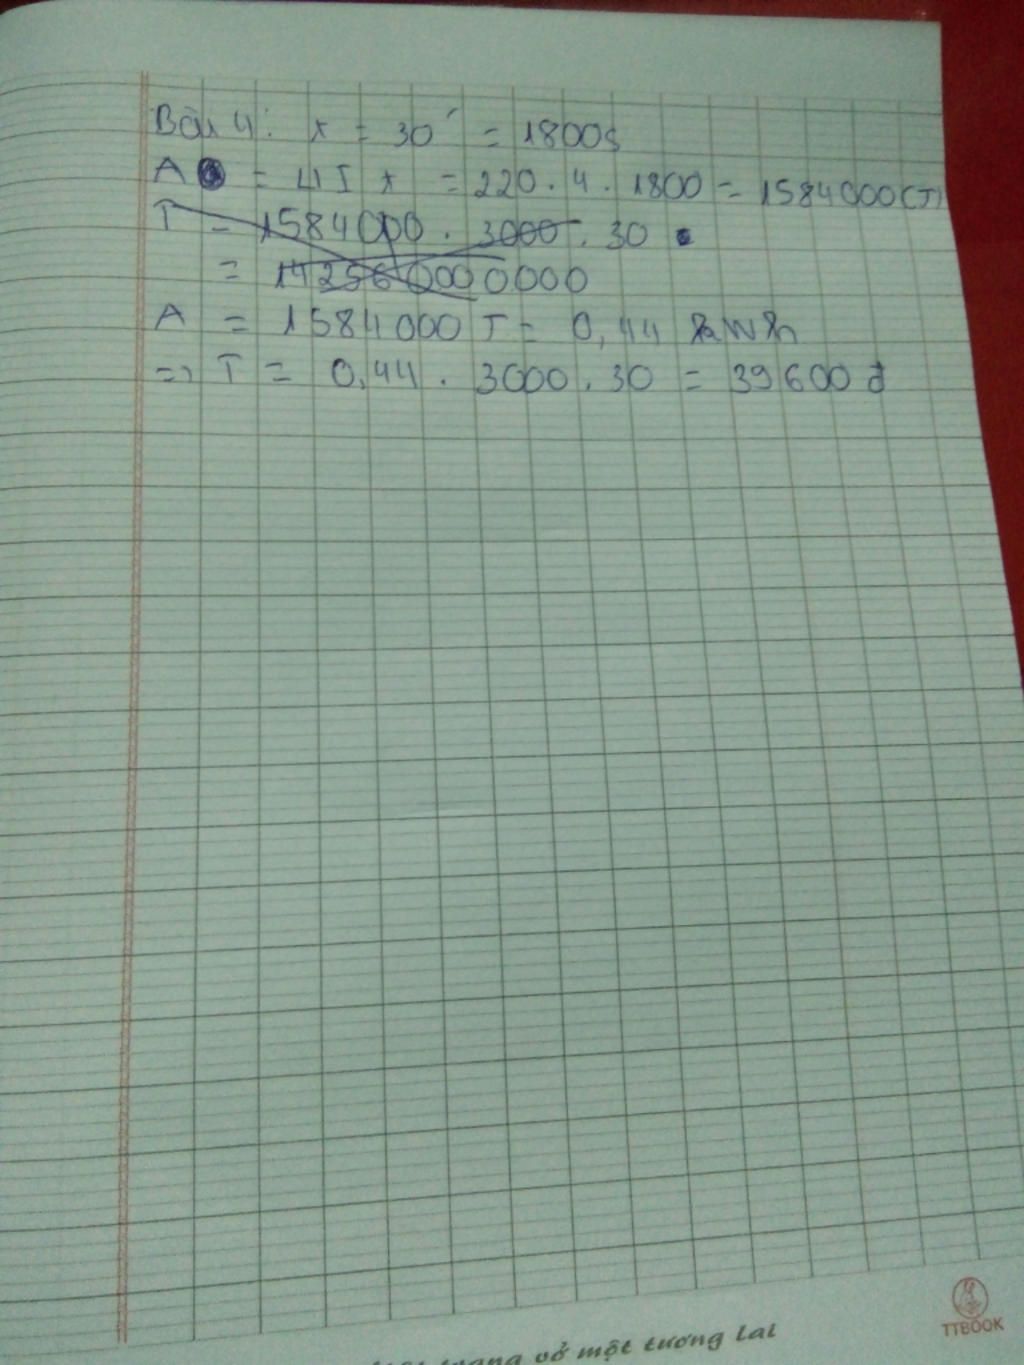 Bài 4: t = 30' = 1800s
A = UIt = 220.4.1800 = 1584000(J)
T = 1584000.3000.30
= 142560000000
A = 1584000 J = 0,44 kWh
=> T = 0,44.3000.30 = 39600 đ
trang vở một tương lai
TTBOOK